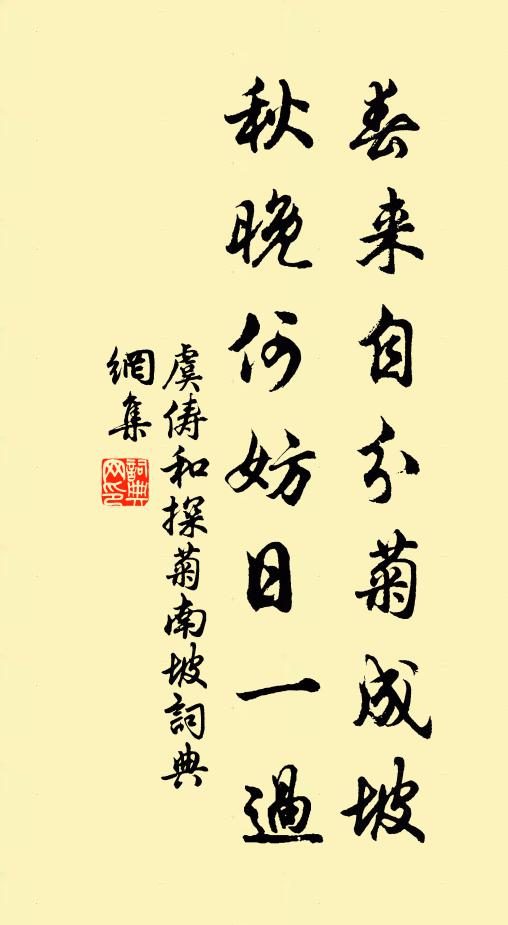 春来自分菊成坡
秋晚何妨日一過
虞俦和探菊南坡詞典
網集
詞典
网印